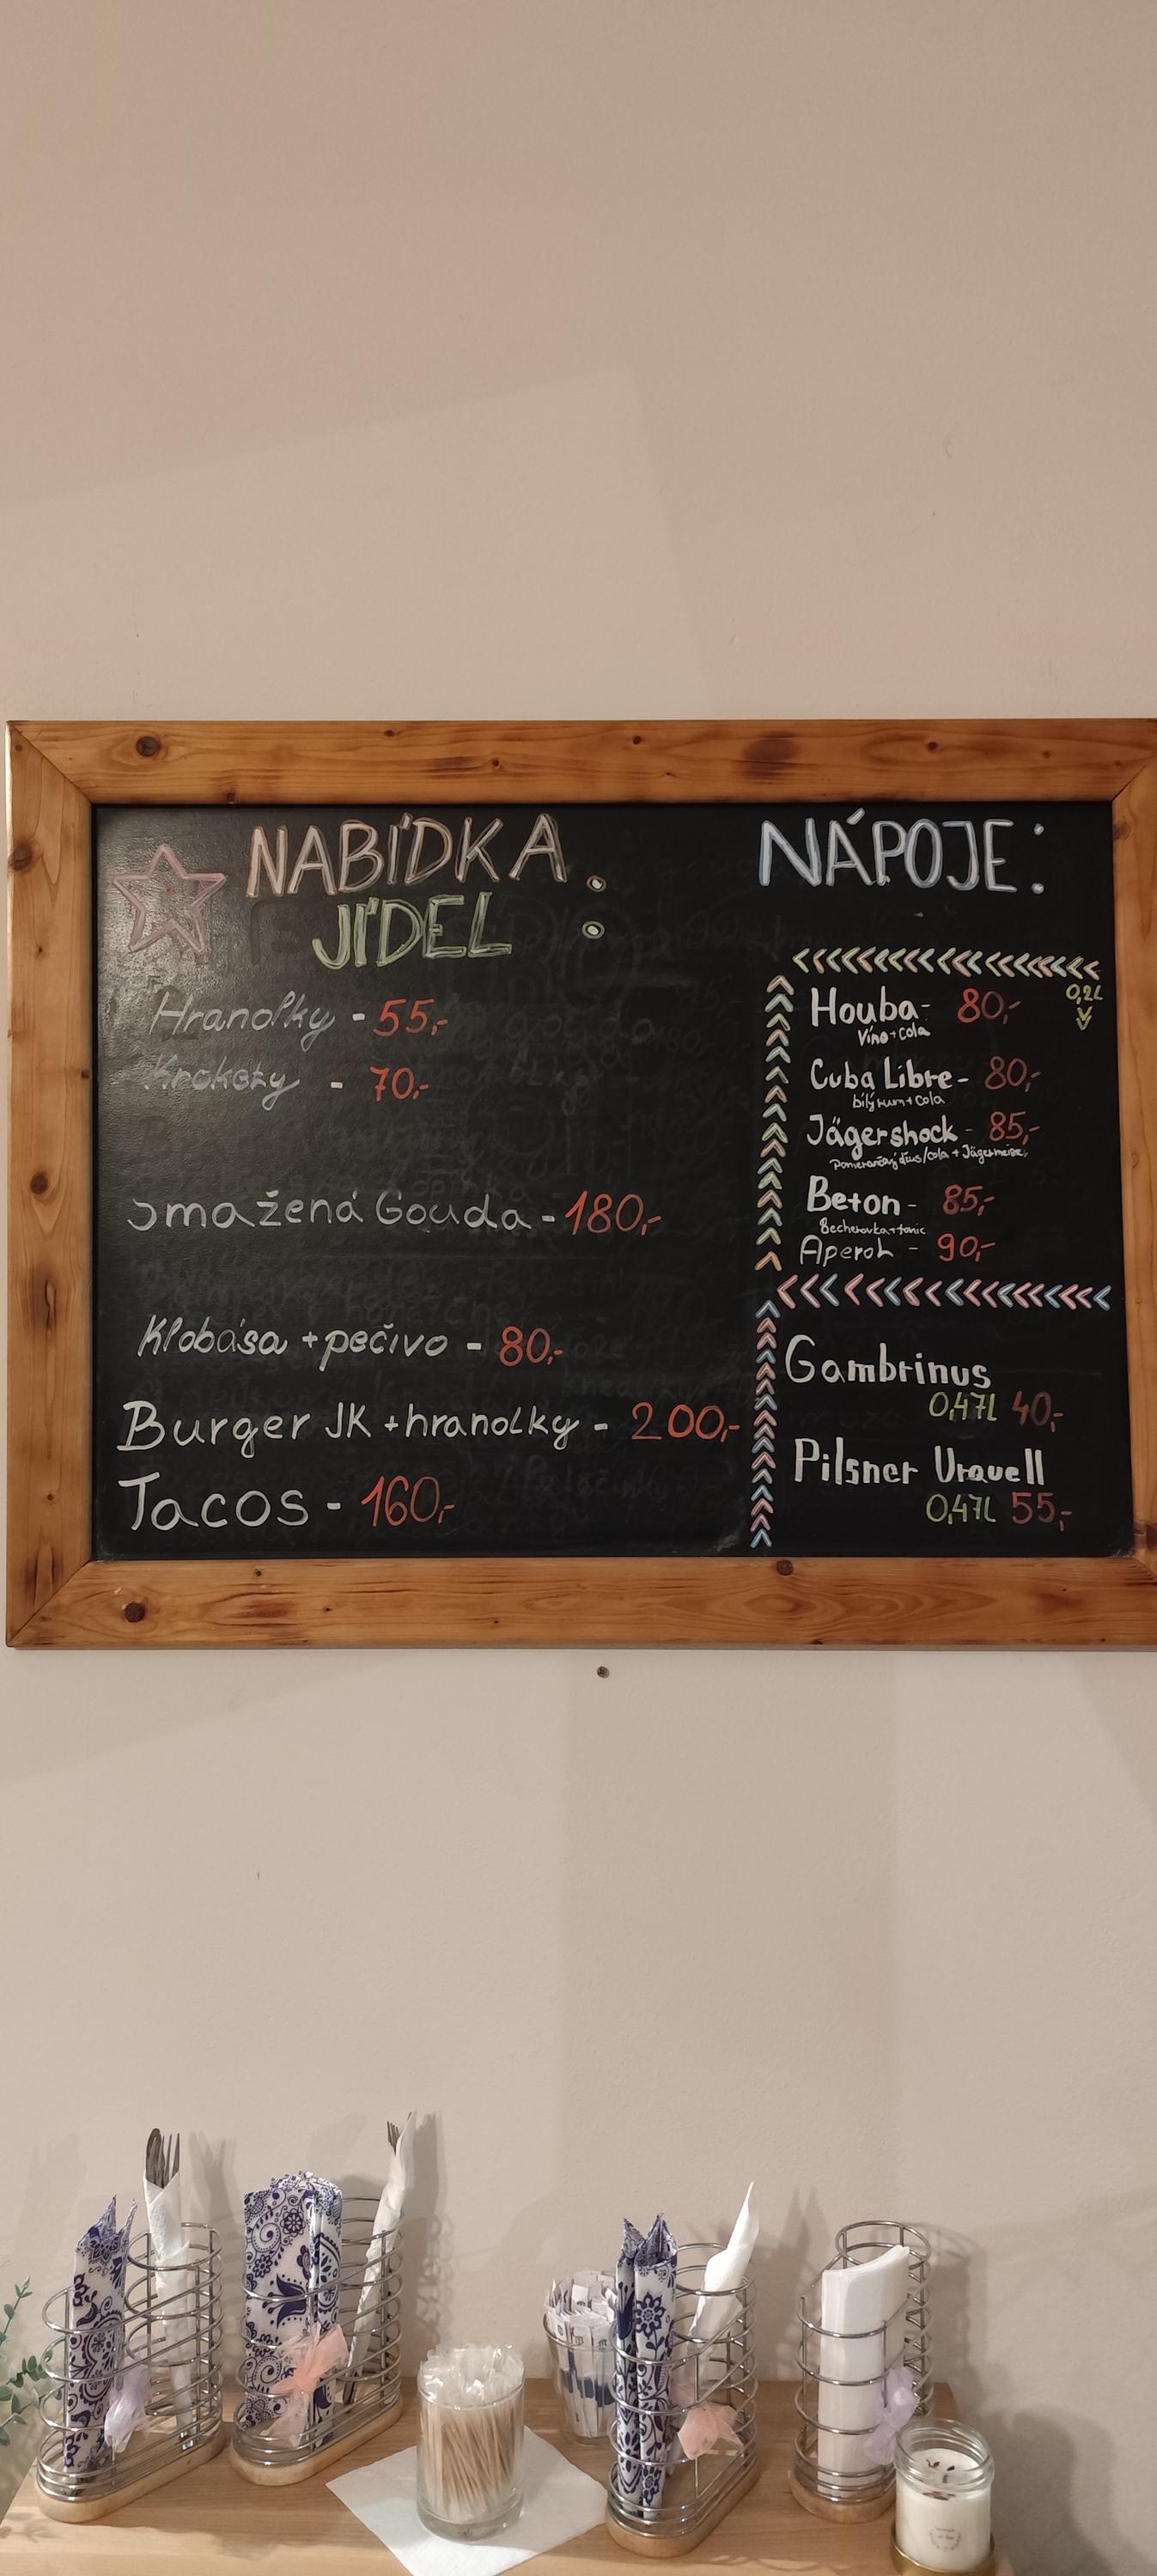 NABÍDKA :
JÍDEL
Hranolky - 55,-
Krokety - 70,-
Smažená Gouda - 180,-
Klobása + pečivo - 80,-
Burger JK + hranolky - 200,-
Tacos - 160,-
NÁPOJE:
0,2L
Houba - 80,-
Víno + cola
Cuba Libre - 80,-
bílý rum + cola
Jägershock - 85,-
Pomerančový džus/cola + Jägermeister
Beton - 85,-
Becherovka + tonic
Aperol - 90,-
Gambrinus
0,47l 40,-
Pilsner Urquell
0,47l 55,-